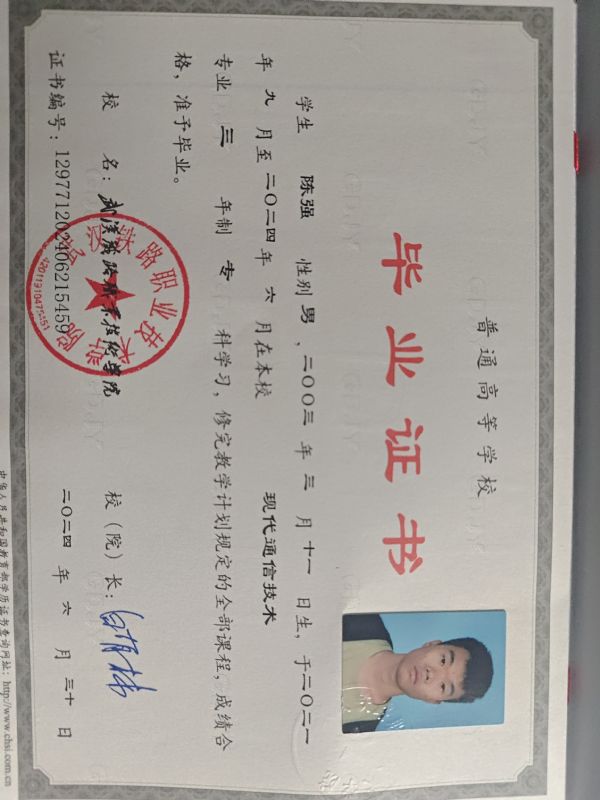 普通高等学校
毕业证书
学生 陈强 性别 男，二〇〇三 年 三 月 十一 日生，于二〇二一
年 九 月至 二〇二四 年 六 月在本校 现代通信技术
专业 三 年制 专 科学习，修完教学计划规定的全部课程，成绩合
格，准予毕业。
校 名：武汉铁路职业技术学院 校（院）长：
证书编号：129771202406215459 二〇二四 年 六 月 三十 日
中华人民共和国教育部学历证书查询网址：http://www.chsi.com.cn